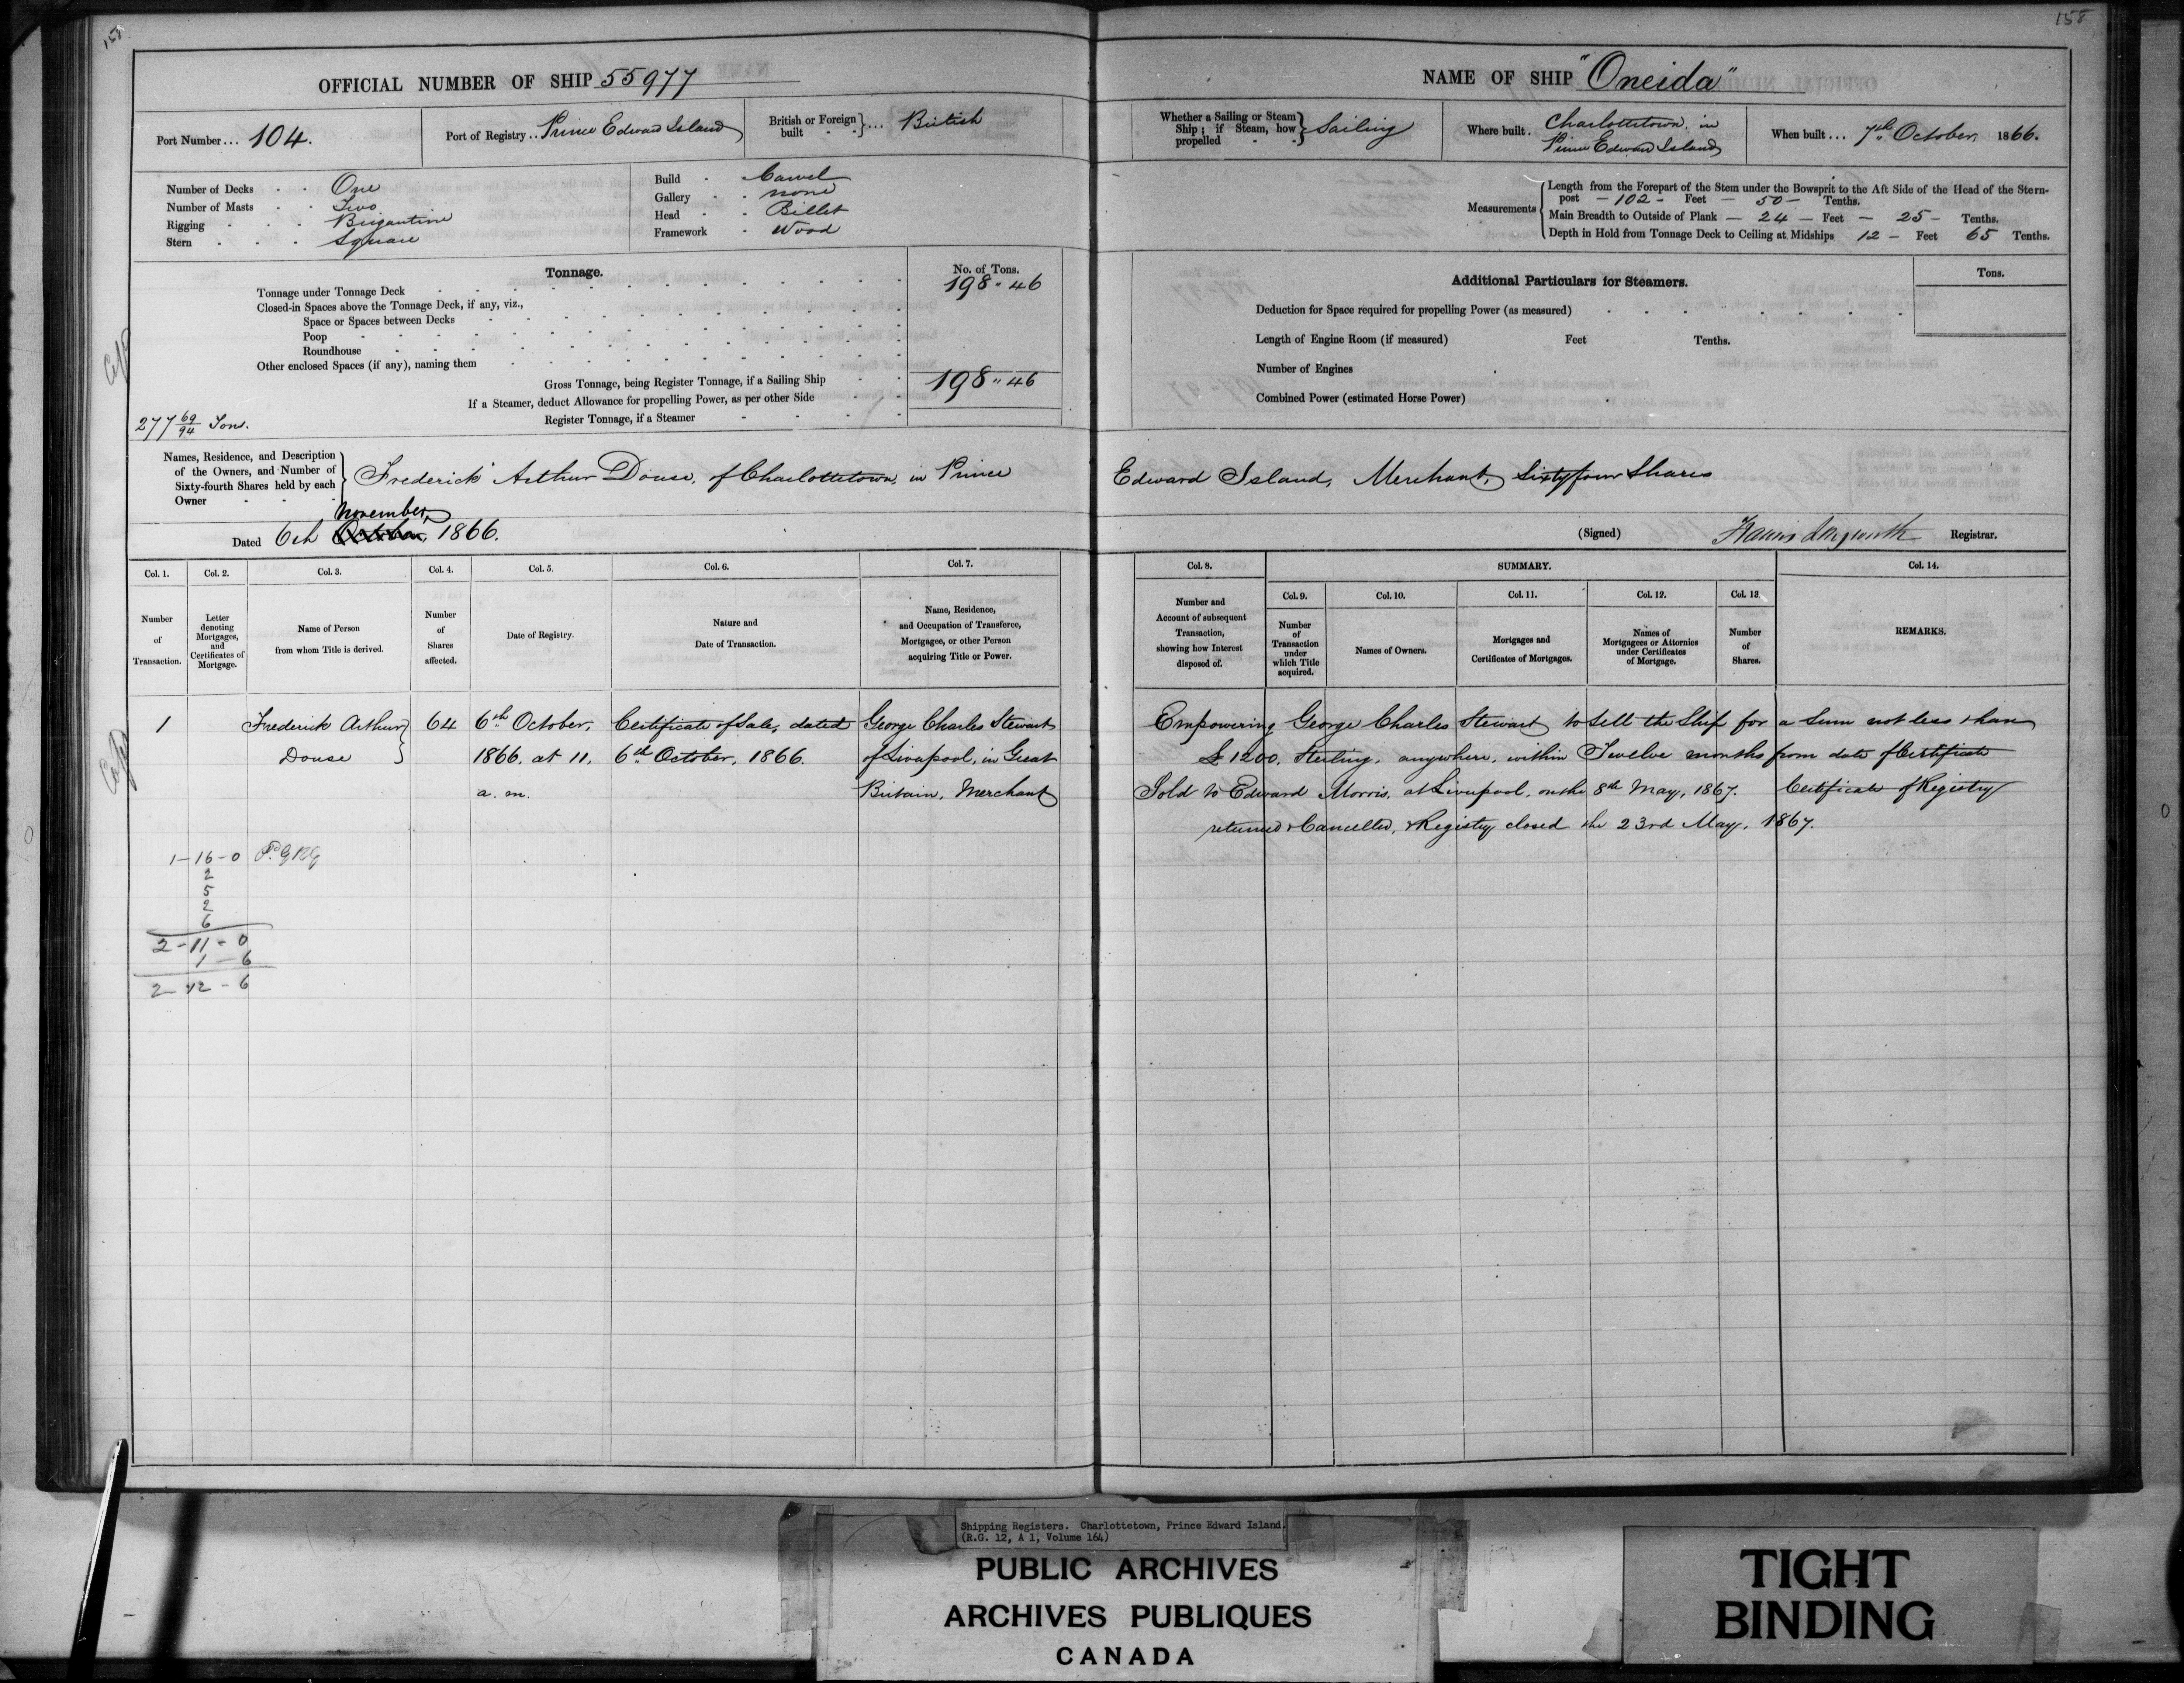 158
158
OFFICIAL NUMBER OF SHIP 55977
Port Number... 104.
Port of Registry.. Prince Edward Island
British or Foreign built }... British
Number of Decks One
Number of Masts Two
Rigging Brigantine
Stern Square
Build Carvel
Gallery none
Head Billet
Framework Wood
Tonnage.
No. of Tons.
Tonnage under Tonnage Deck 198 " 46
Closed-in Spaces above the Tonnage Deck, if any, viz.,
Space or Spaces between Decks
Poop
Roundhouse
Other enclosed Spaces (if any), naming them
Gross Tonnage, being Register Tonnage, if a Sailing Ship 198 " 46
If a Steamer, deduct Allowance for propelling Power, as per other Side
Register Tonnage, if a Steamer
277 69/94 Tons.
NAME OF SHIP "Oneida"
Whether a Sailing or Steam Ship; if Steam, how propelled } Sailing
Where built. Charlottetown, in
Prince Edward Island
When built... 7th October, 1866.
Measurements
Length from the Forepart of the Stem under the Bowsprit to the Aft Side of the Head of the Stern-
post — 102 — Feet — 50 — Tenths.
Main Breadth to Outside of Plank — 24 — Feet — 25 — Tenths.
Depth in Hold from Tonnage Deck to Ceiling at Midships 12 — Feet 65 Tenths.
Additional Particulars for Steamers.
Tons.
Deduction for Space required for propelling Power (as measured)
Length of Engine Room (if measured) Feet Tenths.
Number of Engines
Combined Power (estimated Horse Power)
Names, Residence, and Description
of the Owners, and Number of
Sixty-fourth Shares held by each
Owner
Frederick Arthur Douse, of Charlottetown, in Prince Edward Island, Merchant, Sixty four Shares
November,
Dated 6th October, 1866.
(Signed) Francis Longworth Registrar.
Col. 1.
Number
of
Transaction.
Col. 2.
Letter
denoting
Mortgages,
and
Certificates of
Mortgage.
Col. 3.
Name of Person
from whom Title is derived.
Col. 4.
Number
of
Shares
affected.
Col. 5.
Date of Registry.
Col. 6.
Nature and
Date of Transaction.
Col. 7.
Name, Residence,
and Occupation of Transferee,
Mortgagee, or other Person
acquiring Title or Power.
Col. 8.
Number and
Account of subsequent
Transaction,
showing how Interest
disposed of.
SUMMARY.
Col. 9.
Number
of
Transaction
under
which Title
acquired.
Col. 10.
Names of Owners.
Col. 11.
Mortgages and
Certificates of Mortgages.
Col. 12.
Names of
Mortgagees or Attornies
under Certificates
of Mortgage.
Col. 13.
Number
of
Shares.
Col. 14.
REMARKS.
1
Frederick Arthur
Douse
64
6th October,
1866. at 11.
a. m.
Certificate of Sale, dated
6th October, 1866.
George Charles Stewart
of Liverpool, in Great
Britain, Merchant
Empowering George Charles Stewart to Sell the Ship for a Sum not less than
£1200. Sterling, anywhere, within Twelve months from date of Certificate
Sold to Edward Morris, at Liverpool, on the 8th May, 1867. Certificate of Registry
returned & Cancelled, & Registry closed the 23rd May, 1867.
1—16—0
2
5
2
6
2—11—0
1—6
2—12—6
Shipping Registers. Charlottetown, Prince Edward Island.
(R.G. 12, A 1, Volume 164)
PUBLIC ARCHIVES
ARCHIVES PUBLIQUES
CANADA
TIGHT
BINDING